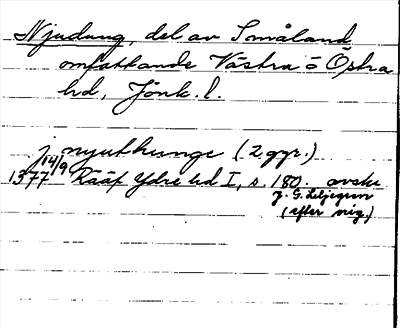 Njudung, del av Småland
omfattande Västra o Östra
hd, Jönk. l.
j nyuthunge (2 ggr.)
14/9
1377 Rääf Ydre hd I, s. 180. avskr
J. G. Liljegren
(efter orig.)